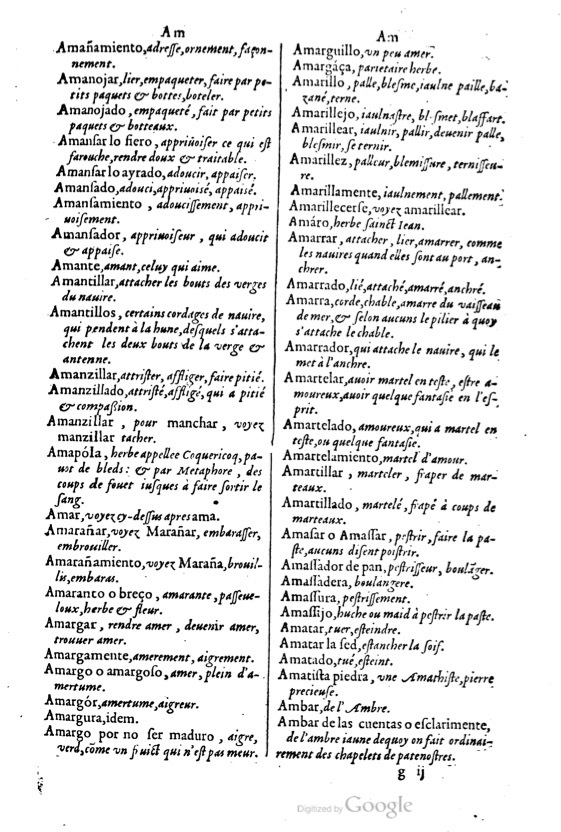 Am
Amañamiento, adresse, ornement, façon-
nement.
Amanojar, lier, empaqueter, faire par pe-
tits paquets & bottes, boteler.
Amanojado, empaqueté, fait par petits
paquets & botteaux.
Amansar lo fiero, apprivoiser ce qui est
farouche, rendre doux & traitable.
Amansar lo ayrado, adoucir, appaiser.
Amansado, adouci, apprivoisé, appaisé.
Amansamiento, adoucissement, appri-
uoisement.
Amansador, apprivoiseur, qui adoucit
& appaise.
Amante, amant, celuy qui aime.
Amantillar, attacher les bouts des verges
du nauire.
Amantillos, certains cordages de nauire,
qui pendent à la hune, desquels s'atta-
chent les deux bouts de la verge &
antenne.
Amanzillar, attrister, affliger, faire pitié.
Amanzillado, attristé, affligé, qui a pitié
& compassion.
Amanzillar, pour manchar, voyez
manzillar tacher.
Amapóla, herbe appellee Coquericoq, pa-
uot de bleds: & par Metaphore, des
coups de fouet iusques à faire sortir le
sang.
Amar, voyez cy-dessus apres ama.
Amarañar, voyez Marañar, embarasser,
embrouiller.
Amarañamiento, voyez Maraña, brouil-
lis, embaras.
Amaranto o breço, amarante, passeue-
loux, herbe & fleur.
Amargar, rendre amer, deuenir amer,
trouuer amer.
Amargamente, amerement, aigrement.
Amargo o amargoso, amer, plein d'a-
mertume.
Amargór, amertume, aigreur.
Amargura, idem.
Amargo por no ser maduro, aigre,
verd, cõme vn fruict qui n'est pas meur.
Am
Amarguillo, vn peu amer.
Amargáça, parietaire herbe.
Amarillo, palle, blesme, iaulne paille, ba-
zané, terne.
Amarillejo, iaulnastre, blesmet, blaffart.
Amarillear, iaulnir, pallir, deuenir palle,
blesmir, se ternir.
Amarillez, palleur, blemissure, ternisseu-
re.
Amarillamente, iaulnement, pallement.
Amarillecerse, voyez amarillear.
Amáro, herbe sainct Iean.
Amarrar, attacher, lier, amarrer, comme
les nauires quand elles sont au port, an-
chrer.
Amarrado, lié, attaché, amarré, anchré.
Amarra, corde, chable, amarre du vaisseau
de mer, & selon aucuns le pilier à quoy
s'attache le chable.
Amarrador, qui attache le nauire, qui le
met à l'anchre.
Amartelar, auoir martel en teste, estre a-
moureux, auoir quelque fantasie en l'es-
prit.
Amartelado, amoureux, qui a martel en
teste, ou quelque fantasie.
Amartelamiento, martel d'amour.
Amartillar, marteler, fraper de mar-
teaux.
Amartillado, martelé, frapé à coups de
marteaux.
Amasar o Amassar, pestrir, faire la pa-
ste, aucuns disent poistrir.
Amassador de pan, pestrisseur, boulãger.
Amassadera, boulangere.
Amassura, pestrissement.
Amassijo, huche ou maid à pestrir la paste.
Amatar, tuer, esteindre.
Amatar la sed, estancher la soif.
Amatado, tué, esteint.
Amatista piedra, vne Amathiste, pierre
precieuse.
Ambar, de l'Ambre.
Ambar de las cuentas o esclarimente,
de l'ambre iaune dequoy on fait ordinai-
rement des chapelets de patenostres.
g ij
Digitized by Google